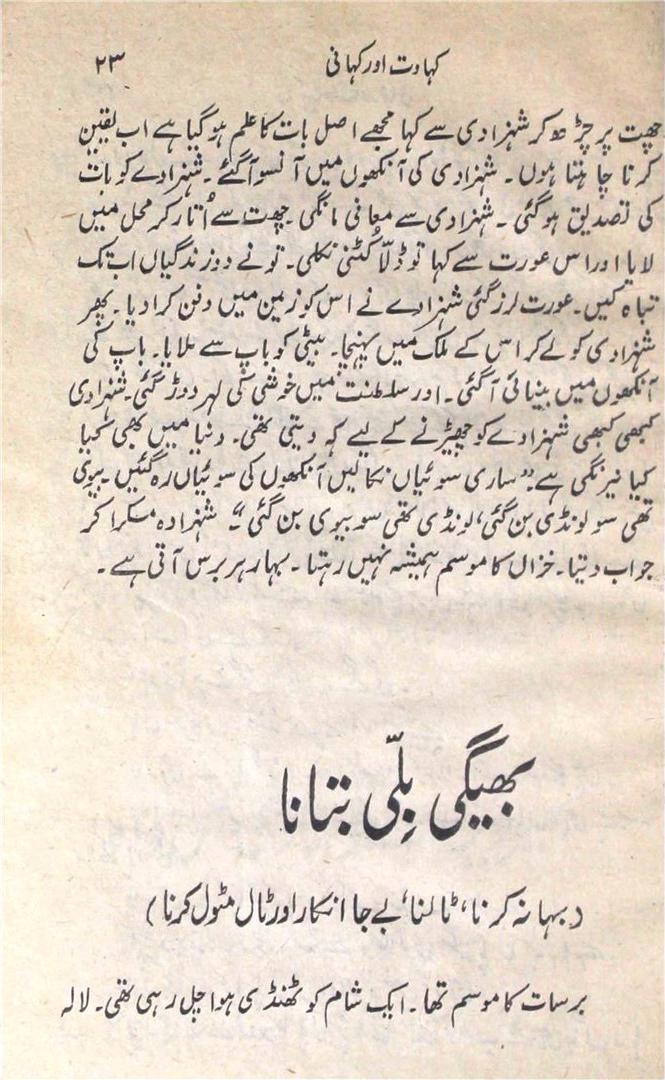 کہاوت اور کہانی ۲۳
چھت پر چڑھ کر شہزادی سے کہا مجھے اصل بات کا علم ہو گیا ہے اب یقین
کرنا چاہتا ہوں۔ شہزادی کی آنکھوں میں آنسو آگئے۔ شہزادے کو بات
کی تصدیق ہو گئی۔ شہزادی سے معافی مانگی۔ چھت سے اُتار کر محل میں
لایا اور اس عورت سے کہا تو ڈلّا کُٹنی نکلی۔ تونے دو زندگیاں اب تک
تباہ کیں۔ عورت لرز گئی شہزادے نے اس کو زمین میں دفن کرا دیا۔ پھر
شہزادی کو لے کر اس کے ملک میں پہنچا۔ بیٹی کو باپ سے ملایا۔ باپ کی
آنکھوں میں بینائی آگئی۔ اور سلطنت میں خوشی کی لہر دوڑ گئی۔ شہزادی
کبھی کبھی شہزادے کو چھیڑنے کے لیے کہہ دیتی تھی۔ دنیا میں بھی
کیا نیرنگی ہے۔ "ساری سوئیاں نکالیں آنکھوں کی سوئیاں رہ گئیں۔ بیوی
تھی سو لونڈی بن گئی، لونڈی تھی سو بیوی بن گئی"۔ شہزادہ مسکرا کر
جواب دیتا۔ خزاں کا موسم ہمیشہ نہیں رہتا۔ بہار ہر برس آتی ہے۔
بھیگی بِلّی بتانا
(بہانہ کرنا، ٹالنا، بے جا انکار اور ٹال مٹول کرنا)
برسات کا موسم تھا۔ ایک شام کو ٹھنڈی ہوا چل رہی تھی۔ لالہ